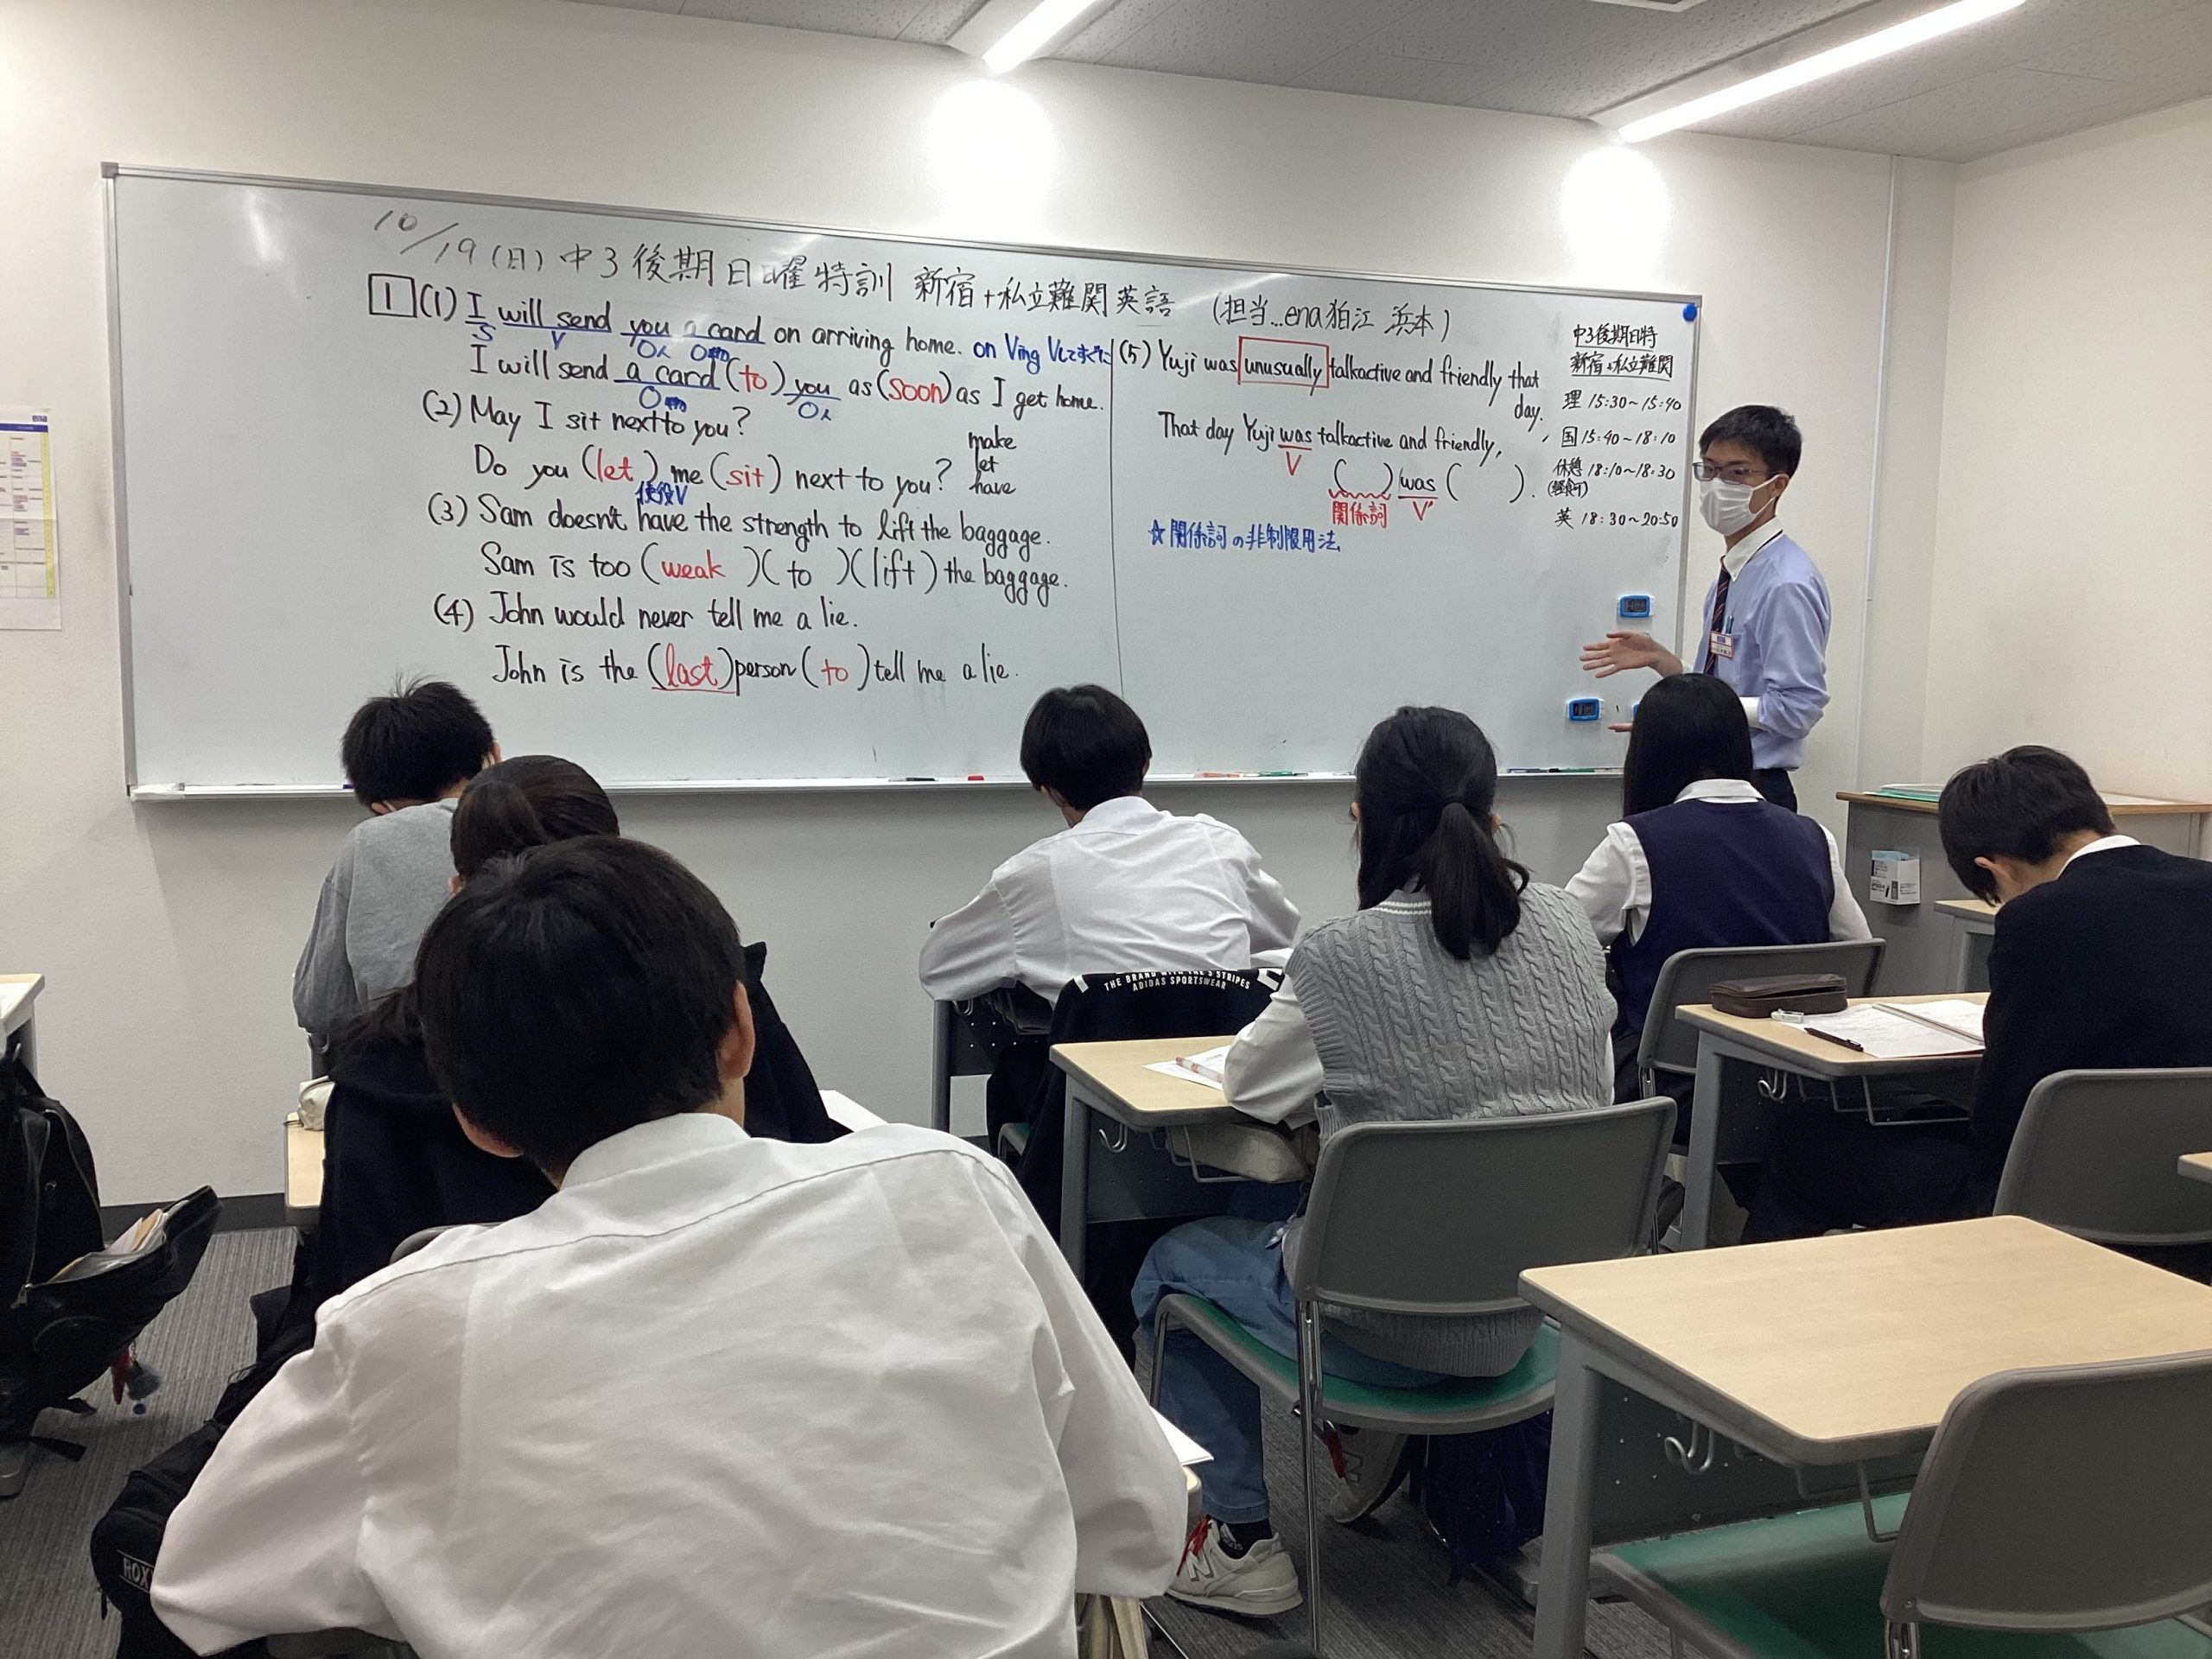 10/19(日) 中3後期日曜特訓 新宿+私立難関英語 (担当...ena狛江 浜本)
1 (1) I will send you a card on arriving home. on Ving Vしてすぐに
S V O人 O物
I will send a card (to) you as (soon) as I get home.
O物 O人
(2) May I sit next to you?
Do you (let) me (sit) next to you?
使役V
make
let
have
(3) Sam doesn't have the strength to lift the baggage.
Sam is too (weak) (to) (lift) the baggage.
(4) John would never tell me a lie.
John is the (last) person (to) tell me a lie.
(5) Yuji was unusually talkactive and friendly that
day.
That day Yuji was talkactive and friendly,
V
( ) was ( ).
関係詞 V'
☆関係詞の非制限用法
中3後期日特
新宿+私立難関
理 15:30~15:40
国 15:40~18:10
休憩 18:10~18:30
(軽食可)
英 18:30~20:50
ena
THE BRAND WITH THE 3 STRIPES
ADIDAS SPORTSWEAR